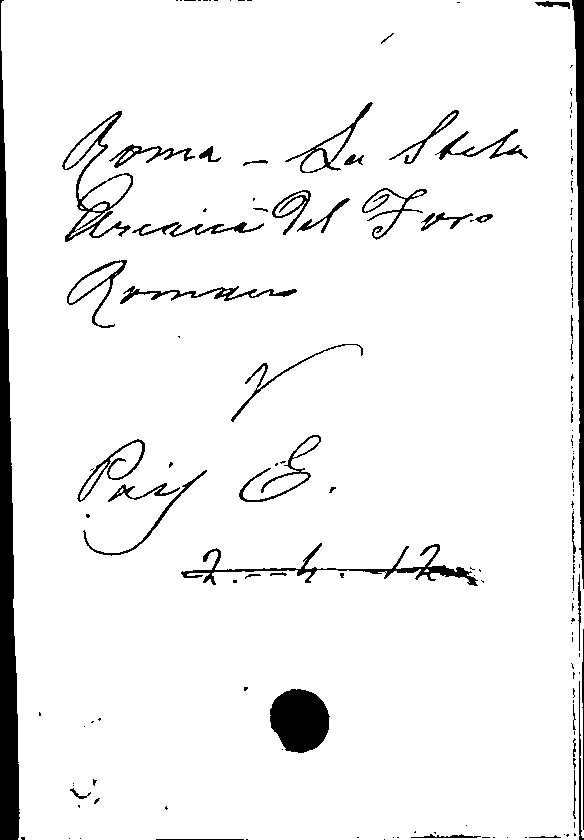 Roma – La Stela
Arcaica del Foro
Romano
V
Pais E.
2. – 4. 12